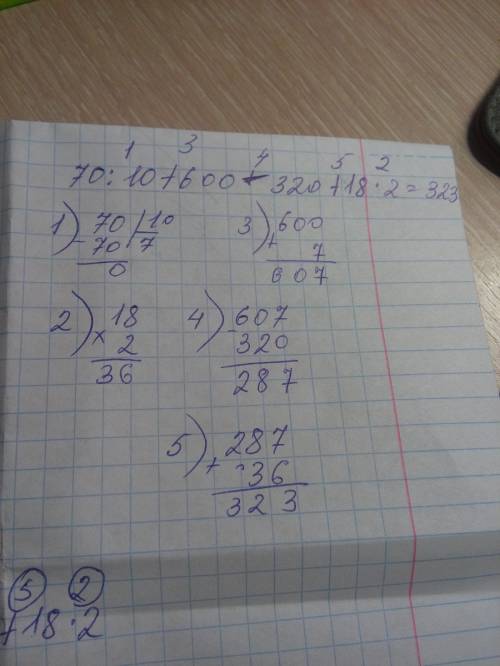 1 3 4 5 2
70:10+600-320+18·2=323
1) 70 10 3) 600
-70 7 + 7
0 607
2) 18 4) 607
× 2 - 320
36 287
5) 287
+ 36
323
5 2
+18·2